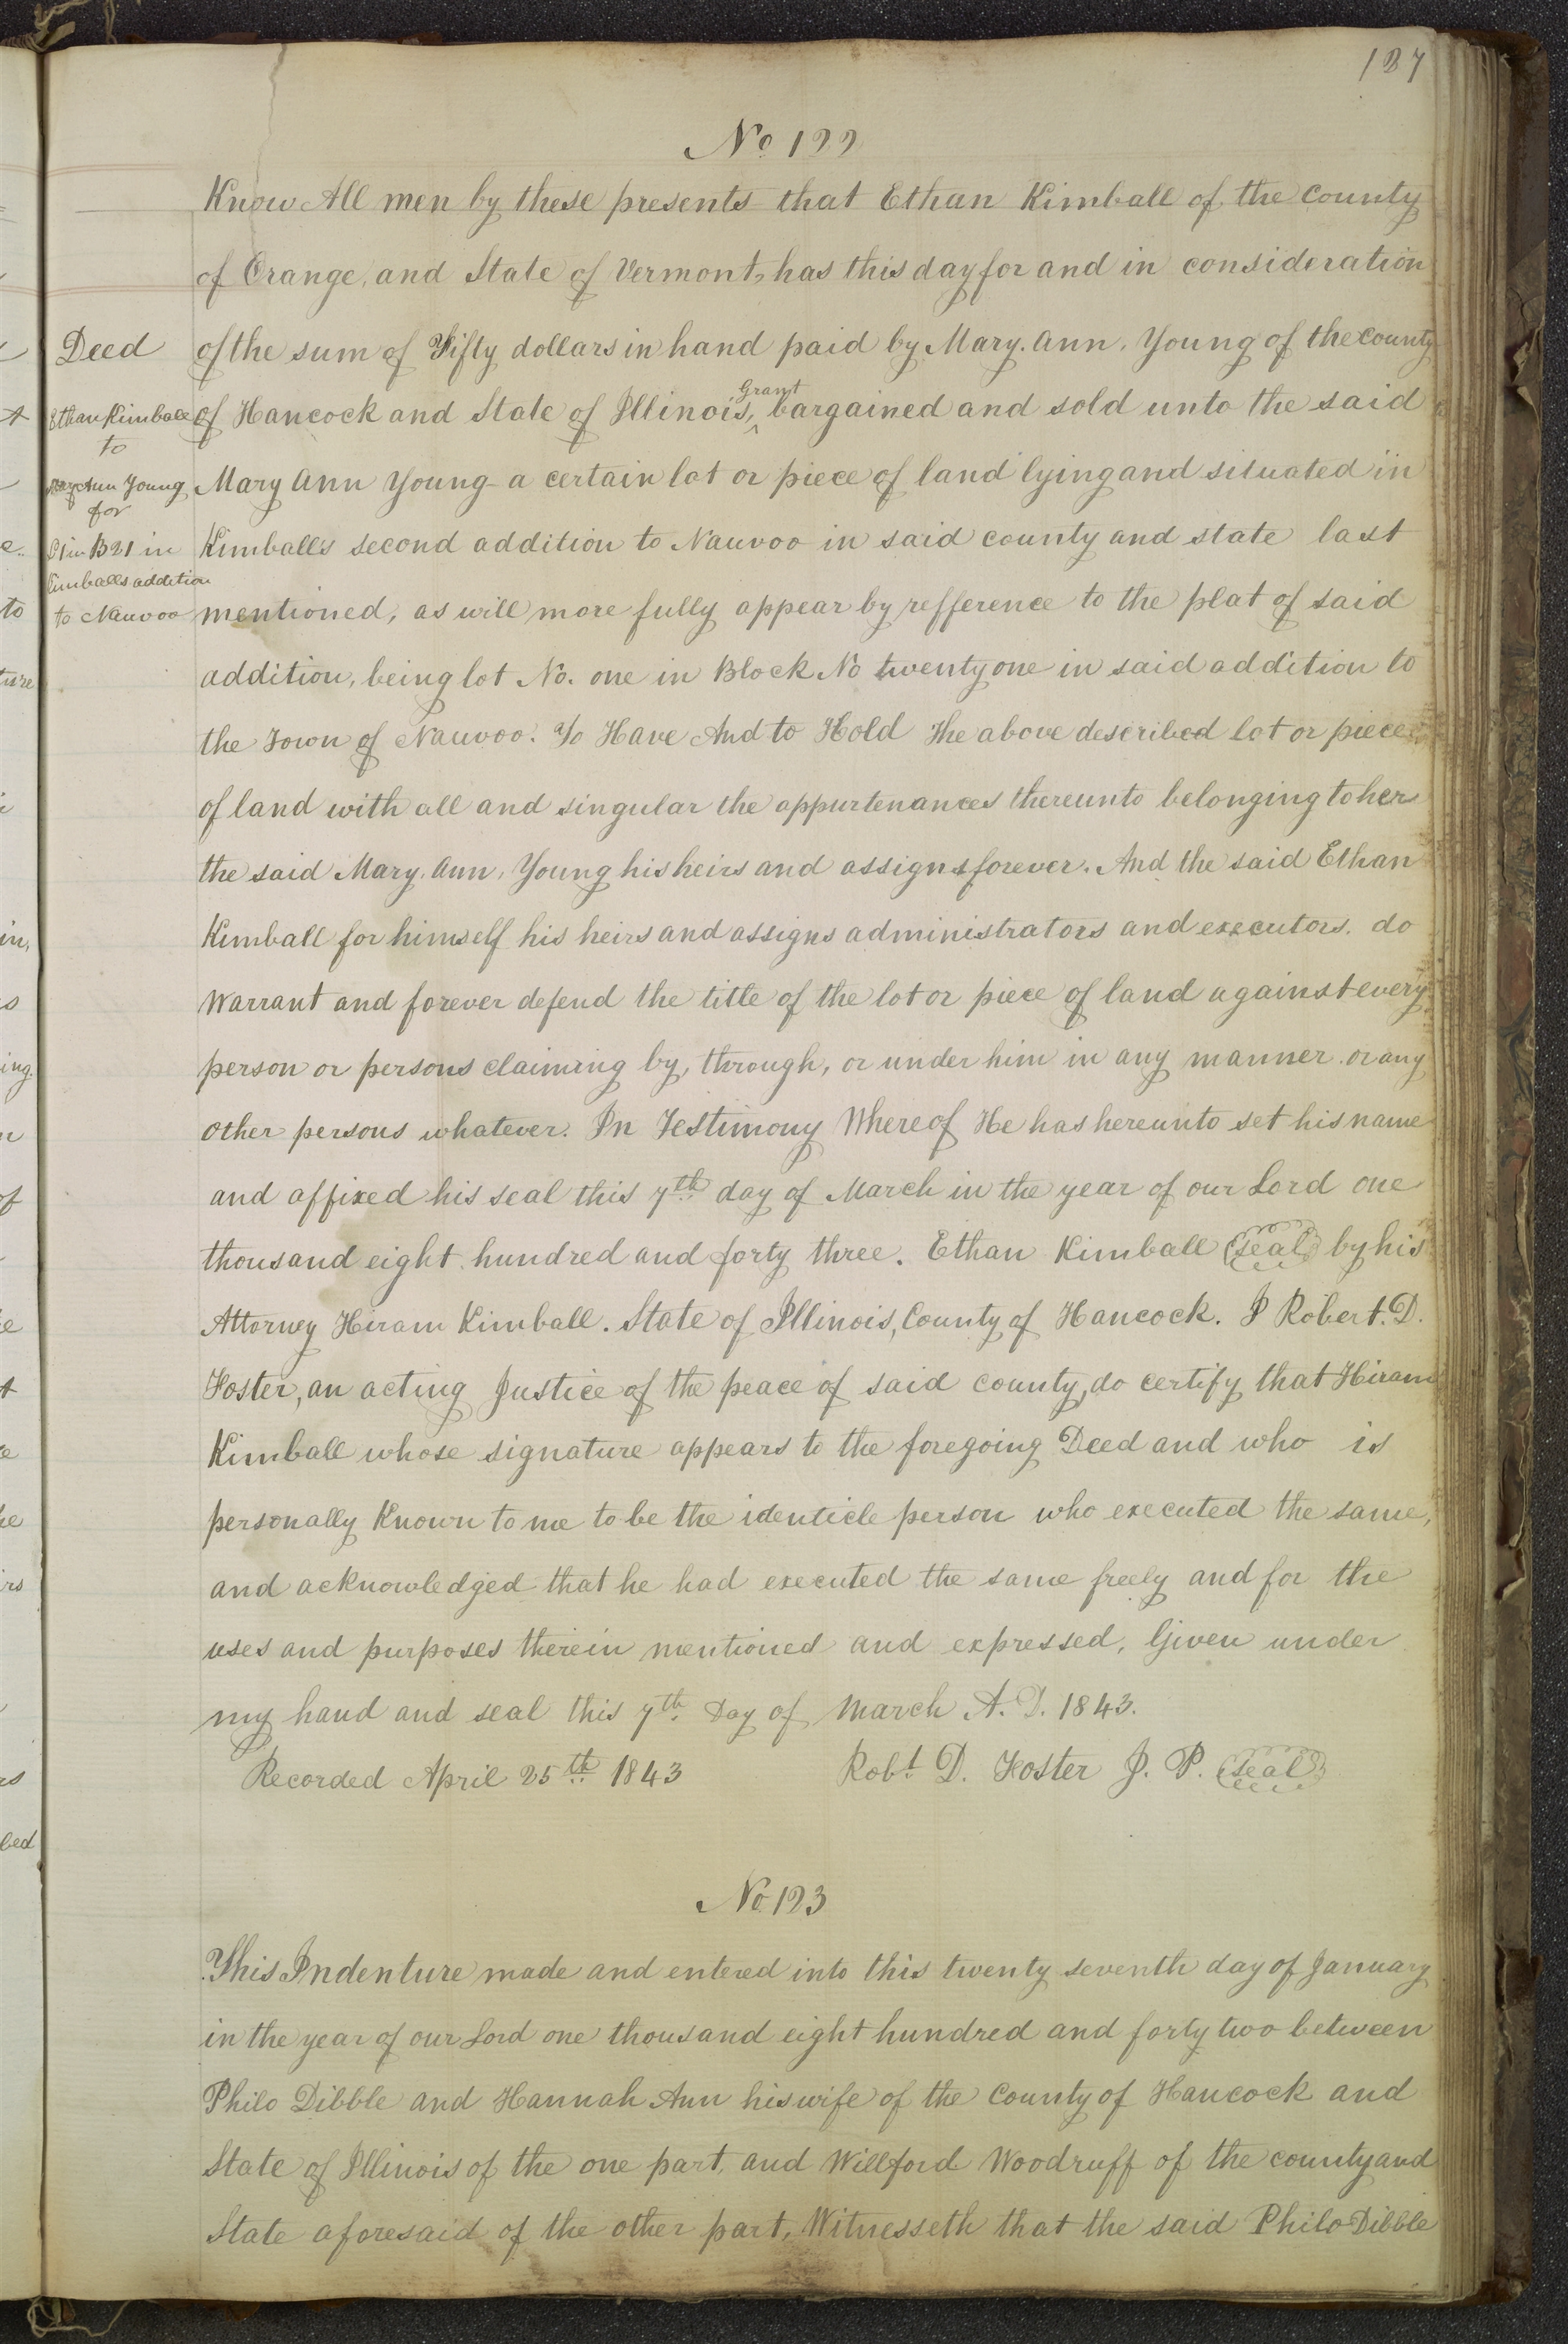 127
No 122
Know All men by these presents that Ethan Kimball of the County
of Orange, and State of Vermont, has this day for and in consideration
Deed
of the sum of Fifty dollars in hand paid by Mary. Ann. Young of the county
Grant
Ethan Kimball
of Hancock and State of Illinois, ^ bargained and sold unto the said
to
Mary Ann Young
Mary Ann Young a certain lot or piece of land lying and situated in
for
L 1 in B 21 in
Kimballs second addition to Nauvoo in said county and state last
Kimballs addition
to Nauvoo
mentioned, as will more fully appear by refference to the plat of said
addition, being lot No. one in Block No twenty one in said addition to
the Town of Nauvoo. To Have And to Hold The above described lot or piece
of land with all and singular the appurtenances thereunto belonging to her
the said Mary. Ann. Young his heirs and assigns forever. And the said Ethan
Kimball for himself his heirs and assigns administrators and executors. do
Warrant and forever defend the title of the lot or piece of land against every
person or persons claiming by, through, or under him in any manner or any
other persons whatever. In Testimony Whereof He has hereunto set his name
and affixed his seal this 7th day of March in the year of our Lord one
thousand eight hundred and forty three. Ethan Kimball (Seal) by his
Attorney Hiram Kimball. State of Illinois, County of Hancock. I Robert. D.
Foster, an acting Justice of the peace of said county, do certify that Hiram
Kimball whose signature appears to the foregoing Deed and who is
personally Known to me to be the identicle person who executed the same,
and acknowledged that he had executed the same freely and for the
uses and purposes therein mentioned and expressed. Given under
my hand and seal this 7th Day of March A. D. 1843.
Recorded April 25th 1843 Robt D. Foster J. P. (Seal)
No 123
This Indenture made and entered into this twenty seventh day of January
in the year of our Lord one thousand eight hundred and forty two between
Philo Dibble and Hannah Ann his wife of the County of Hancock and
State of Illinois of the one part, and Willford Woodruff of the county and
State aforesaid of the other part, Witnesseth that the said Philo Dibble